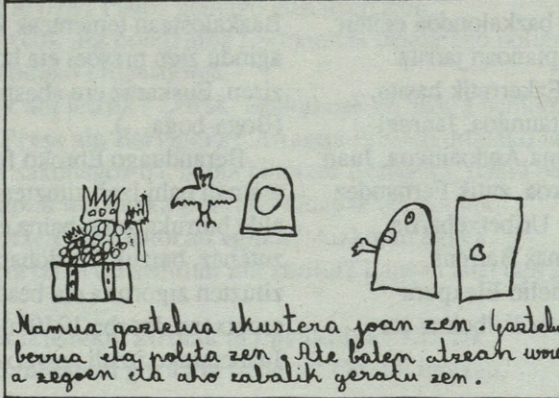 Mamua gaztelua ikustera joan zen. Gaztelu
berria eta polita zen. Ate baten atzean
a zegoen eta aho zabalik geratu zen.